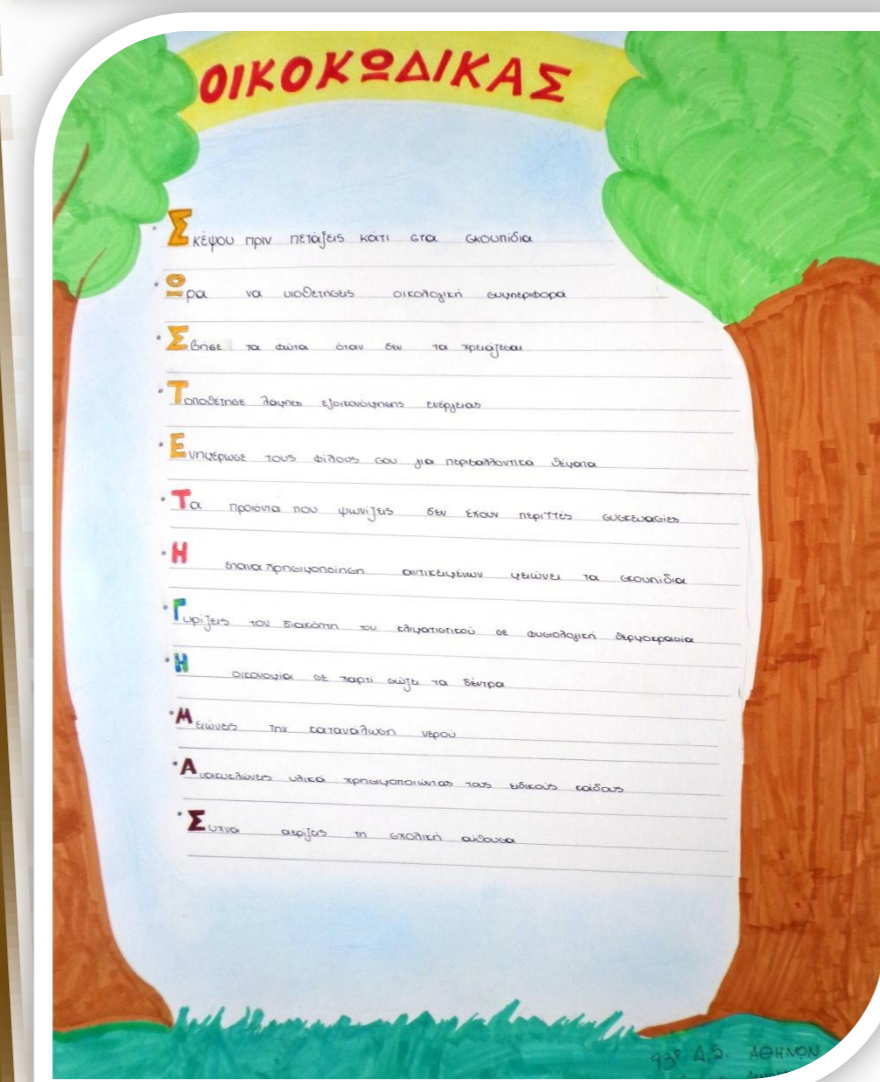 ΟΙΚΟΚΩΔΙΚΑΣ
Σκέψου πριν πετάξεις κάτι στα σκουπίδια
Ωρα να υιοθετήσεις οικολογική συμπεριφορά
Σβήσε τα φώτα όταν δεν τα χρειάζεσαι
Τοποθέτησε λάμπες εξοικονόμησης ενέργειας
Ενημέρωσε τους φίλους σου για περιβαλλοντικά θέματα
Τα προιόντα που ψωνίζεις δεν έχουν περιττές συσκευασίες
Η επαναχρησιμοποίηση αντικειμένων μειώνει τα σκουπίδια
Γυρίζεις τον διακόπτη του κλιματιστικού σε φυσιολογική θερμοκρασία
Η οικονομία σε χαρτί σώζει τα δέντρα
Μειώνεις την κατανάλωση νερού
Ανακυκλώνεις υλικά χρησιμοποιώντας τους ειδικούς κάδους
Συχνά αερίζεις τη σχολική αίθουσα
93ο Δ.Σ. ΑΘΗΝΩΝ